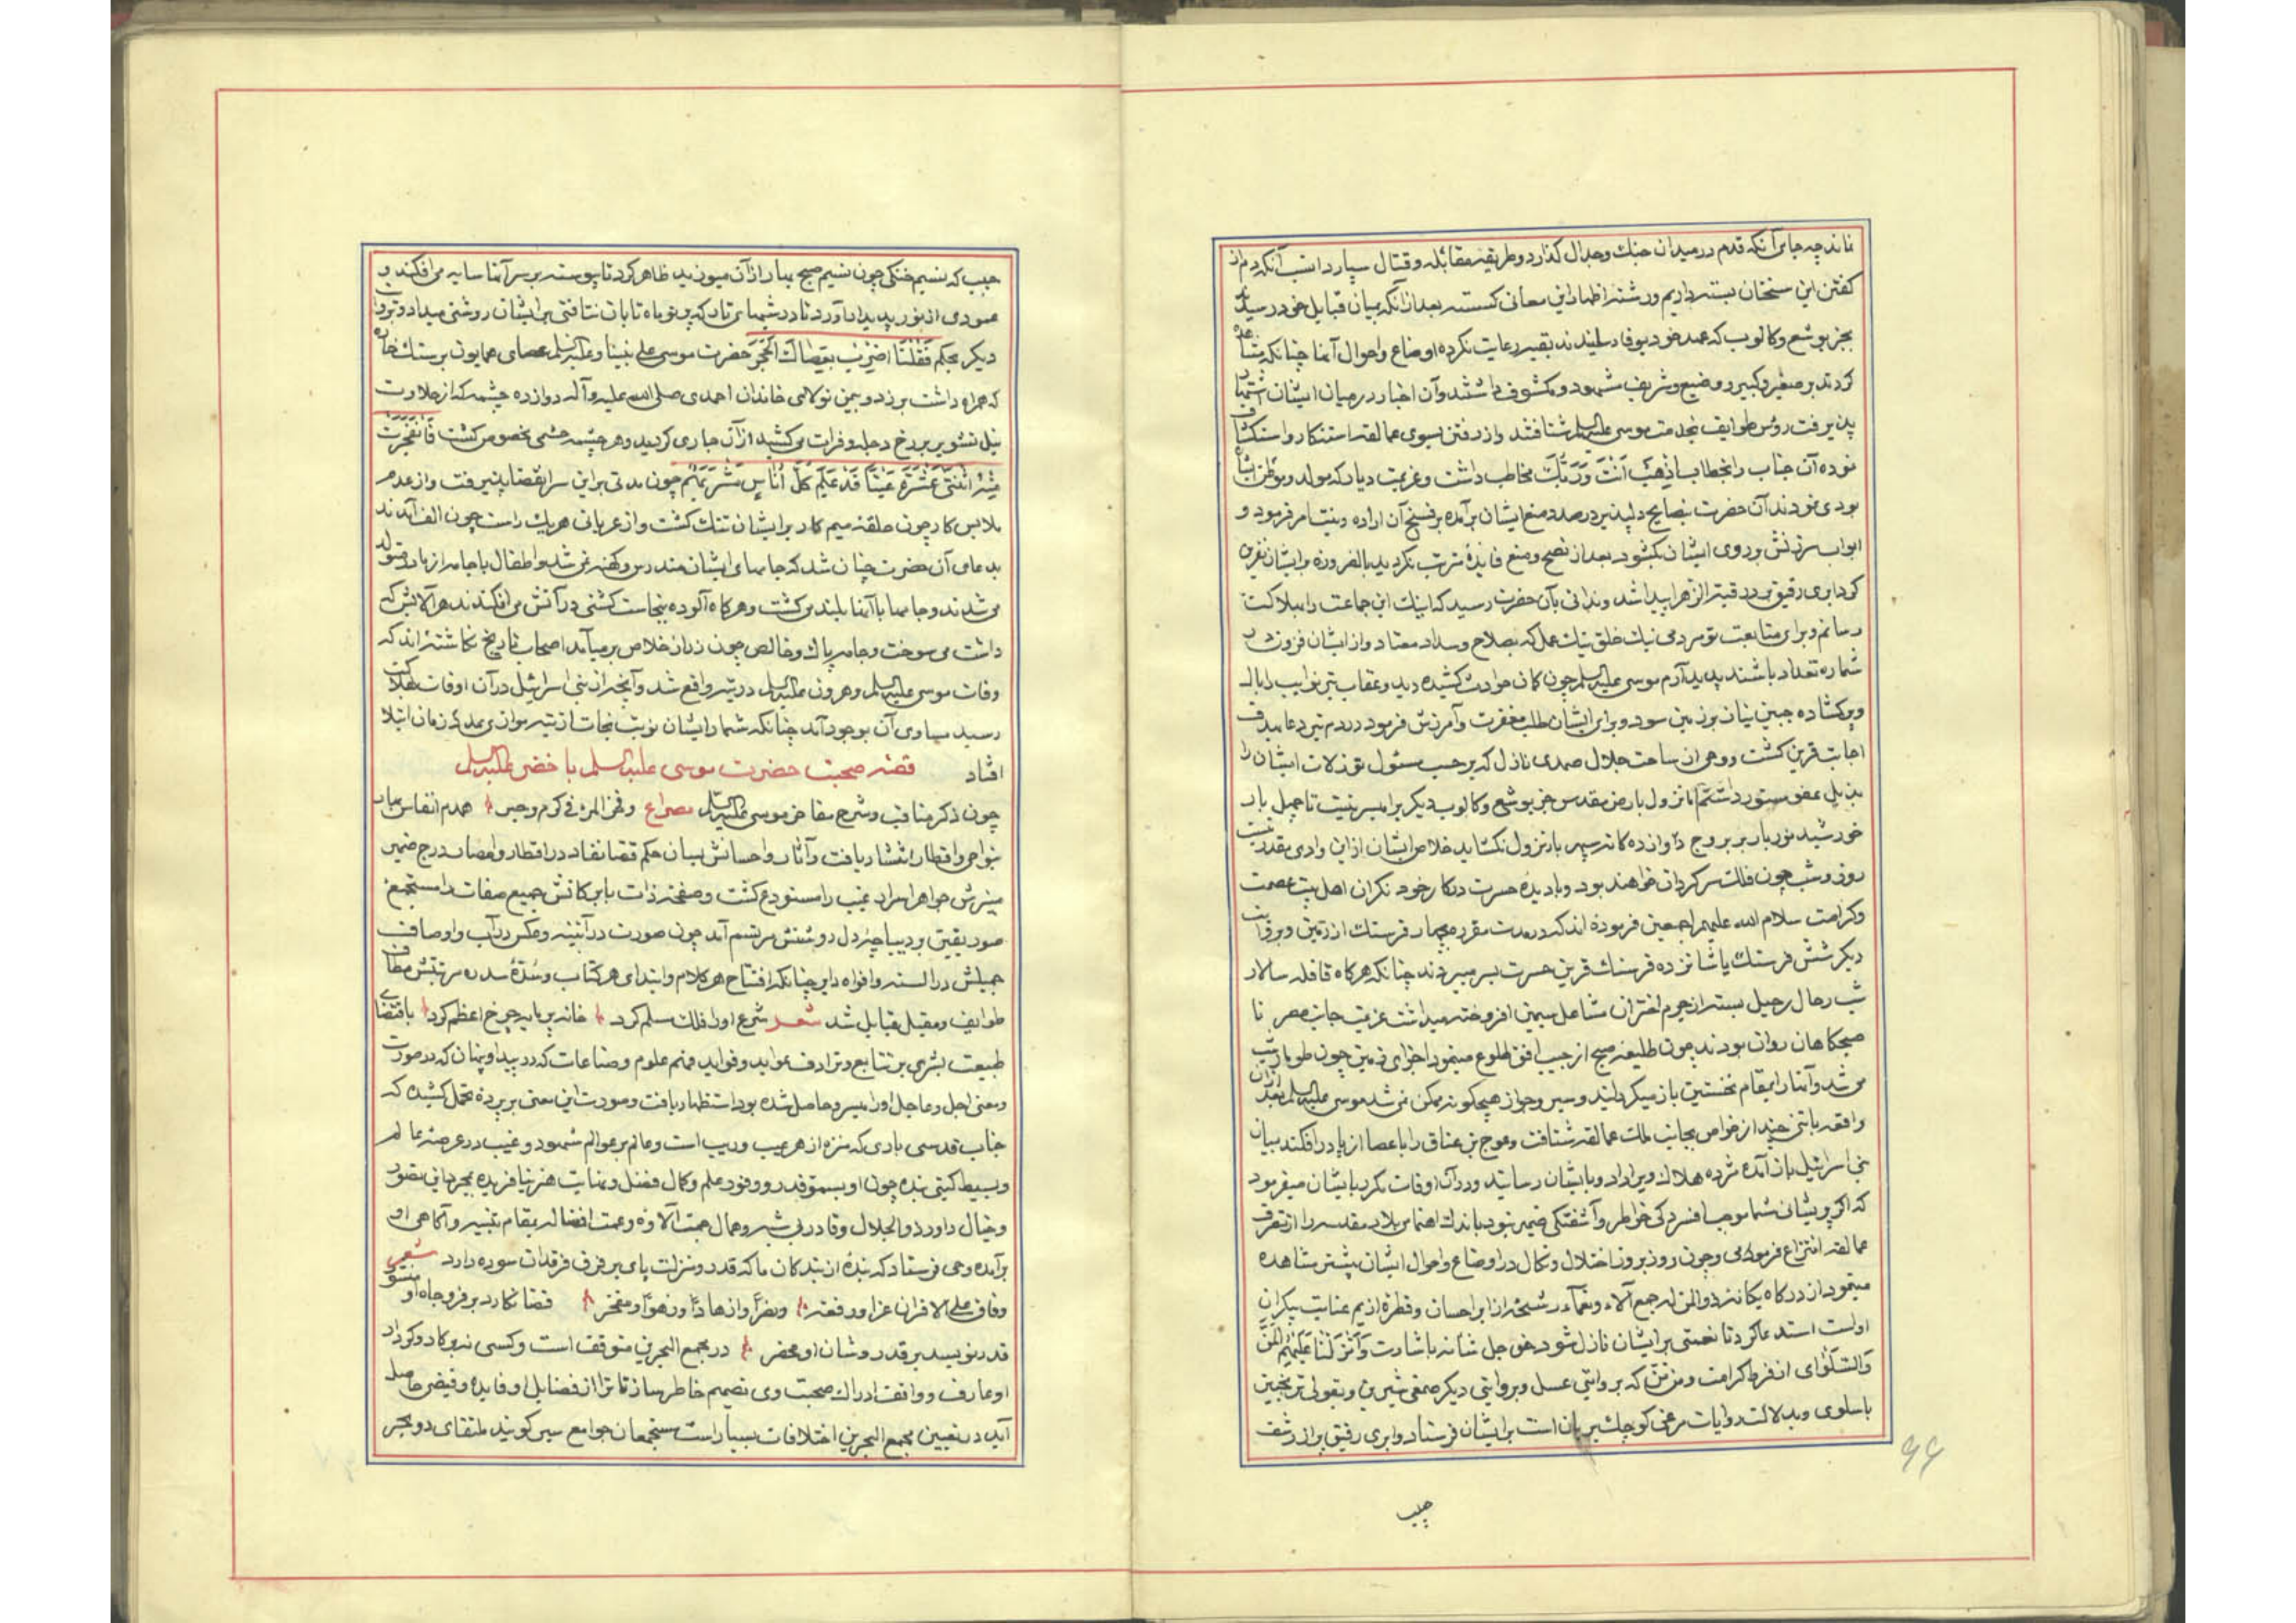 ماند چه جای آنکه قدم در میدان جنک وجدال کذارد و طریقه مقابله و قتال سپارد انسب آنکه دم از
کفتن این سخنان بسته داریم و رشته اظهار این معانی کسسته بعد از آنکه بمیان قبایل خود رسیدند
بجز یوشع وکالوب که عهد خود بوفا رسانیدند بقیه رعایت نکرده اوضاع واحوال آنها چنانکه مشاهده
کردند بر صغیر وکبیر و وضیع وشریف مشهود و مکشوف داشتند وآن اخبار در میان ایشان اشتهار
پذیرفت رؤس طوایف بخدمت موسی علیه السلم شتافتند واز رفتن بسوی عمالقه استنکار و استنکاف
نموده آن جناب را بخطاب اذهب انت وربک مخاطب داشت وعزیمت دیار که مولد وموطن ایشان
بودی نمودند آن حضرت بنصایح دلپذیر در صدد منع ایشان برآمده بر فسخ آن اراده فرمود و
ابواب سرزنش بر روی ایشان بکشود بعد از نصح و منع فایدهٔ مترتب نکردید بالضروره بر ایشان نفرین
کرد ابری رقیق پیدا شد وندائی بآن حضرت رسید که اینک این جماعت را بهلاکت
رسانم وبرای متابعت تو مردمی نیک خلق نیک عمل که بصلاح وسداد معتاد واز ایشان فزون در
شماره تعداد باشند پدید آرم موسی علیه السلم چون کمان حوادث کشیده دید وعقاب تیر نوایب را بال
وپر کشاده جبین نیاز بر زمین سود وبرای ایشان طلب مغفرت وآمرزش فرمود در دم تیر دعا بهدف
اجابت قرین کشت ووحی از ساحت جلال صمدی نازل که بر حسب مسئول تو زلات ایشان را
بذیل عفو مستور داشتم اما نزول بارض مقدس جز یوشع وکالوب دیکر را میسر نیست تا چهل بار
خورشید نوربار بر بروج دوازده کانه سپهر بار نزول نکشاید خلاص ایشان از این وادی مقدر نیست
روز وشب چون فلک سرکردان خواهند بود وبا دیدهٔ حسرت در کار خود نکران اهل بیت عصمت
وکرامت سلام الله علیهم اجمعین فرموده اند که در مدت مقرره چهار فرسنک از زمین وبروایت
دیکر شش فرسنک یا شانزده فرسنک قرین حسرت بسر میبردند چنانکه هرکاه قافله سالار
شب رحال رحیل بسته از هجوم اختران مشاعل سیمین افروخته میداشت عزیمت جانب مصر تا
صبحکاهان روان بودند چون طلیعه صبح از جیب افق طلوع مینمود اجزای زمین چون طومار شب
می شد وآنها را بمقام نخستین باز میکردانید وسیر وجواز هیچکونه ممکن نمی شد موسی علیه السلم بعد از آن
واقعه با تنی چند از خواص بجانب ملک عمالقه شتافت وعوج بن عناق را با عصا از پا در افکند بمیان
بنی اسرائیل باز آمده مژده هلاک ویرا داد وبایشان رسانید ودر آن اوقات مکرر بایشان میفرمود
که اکر پریشانی شما موجب افسردکی خواطر وآشفتکی ضمیر نبود باندک اهتمامی بلاد مقدسه را از تصرف
عمالقه انتزاع فرمودمی وچون روز بروز اختلال ونکال در اوضاع واحوال ایشان بیشتر مشاهده
مینمود از درکاه یکانه ذوالمن که جمع آلاء ونعماء رشحه از ابر احسان وقطرهٔ از یم عنایت بیکران
اوست استدعا کرد تا نعمتی بر ایشان نازل شود حق جل شانه باشارت وَاَنزَلنا عَلَیهِمُ المَنَّ
وَالسَّلوٰی از فرط کرامت و من من که بروایتی عسل وبروایتی دیکر صمغی شیرین وبقولی ترنجبین
با سلوی وبدلالت روایات مرغی کوچک بریان است بر ایشان فرستاد وابری رقیق براز رشف
جیب
۶۶
جیب که نسیم خنکی چون نسیم صبح بهار از آن میوزید ظاهر کرد تا پیوسته بر سر آنها سایه می افکند و
عمودی از نور پدید آورد تا در شبهای تار که پرتو ماه تابان نتافتی بر ایشان روشنی میداد
دیکر بحکم فَقُلنَا اضرِب بِعَصاکَ الحَجَر حضرت موسی علی نبینا وعلیه السلم عصای همایون بر سنک خاره
که همراه داشت بر زد وبیمن تولای خاندان احمدی صلی الله علیه وآله دوازده چشمه که از حلاوت
نیل تشویر بر رخ دجله وفرات می کشید از آن جاری کردید وهر چشمه خشمی مخصوص کشت فَانفَجَرَت
مِنهُ اثنَتَی عَشرَةَ عَیناً قَد عَلِمَ کُلُّ اُناسٍ مَشرَبَهُم چون مدتی بر این سرا بقضا پذیرفت واز عدم
ملابس کار چون حلقه میم کار بر ایشان تنک کشت واز عریانی هریک راست چون الف آمدند
بدعای آن حضرت چنان شد که جامهای ایشان مندرس وکهنه نمی شد واطفال با جامه از مادر متولد
می شدند وجامها با آنها بلند می کشت وهرکاه آلوده بنجاست کشتی در آتش می افکندند هر آلایش که
داشت می سوخت وجامه پاک وخالص چون زر از خلاص بر میآمد اصحاب تاریخ نکاشته اند که
وفات موسی علیه السلم وهرون علیه السلم در تیه واقع شد وآنچه از بنی اسرائیل در آن اوقات بهلاکت
رسید مساوی آن بوجود آمد چنانکه شمار ایشان نوبت نجات از تیه موازی عدد زمان ابتلا
افتاد قصه صحبت حضرت موسی علیه السلم با خضر علیه السلم
چون ذکر مناقب وشرح مفاخر موسی علیه السلم مصراع وفخر المرء فی کرم وخیر همدم انفاس
بنواحی واقطار انتشار یافت وآثار واحسانش بسان حکم قضا نفاد در اقطار وامصار درج ضمیر
منیرش جواهر اسرار غیب را مستودع کشت وصفحه ذات بابرکاتش جمیع صفات را مستجمع
صور یقین وبدیباچهٔ دل روشنش مرتسم آمد چون صورت در آئینه وعکس در آب واوصاف
جمیلش در السنه وافواه دایر چنانکه افتتاح هر کلام وابتدای هر کتاب وسدهٔ سدره مرتبتش مطاف
طوایف ومقبل قبایل شد شعر شرع او را فلک مسلم کرد خانه بر بام چرخ اعظم کرد باقتضای
طبیعت بشری بر تتابع وترادف عواید وفواید فهم علوم وصناعات که در پیدا وپنهان که در صورت
ومعنی اجل وعاجل او را میسر وحاصل شده بود استظهار یافت وصورت این معنی بر پردهٔ تخیل کشیده که
جناب قدسی باری که منزه از هر عیب وریب است وعالم بر عوالم شهود وغیب در عرصه عالم
وبسیط کیتی بنده چون او بسمو قدر ووفور علم وکمال فضل ونهایت هنر نیافریده بمجرد این تصور
وخیال داور ذوالجلال وقادر بی شبه وهمال عمت آلاؤه وعمت افضاله بمقام تنبیه وآکاهی او
برآمده وحی فرستاد که بندهٔ از بندکان ما که قدر ومنزلت پای بر فرق فرقدان سوده دارد شعر
وفاق علی الاقران عزا ورفعة وزهوا ومفخر قضا نکارد بر فر وجاه او منشور
قدر نویسد بر قدر وشان او محضر در مجمع البحرین متوقف است وکسی نه بر کار وکردار
او عارف وواقف ادراک صحبت وی تصمیم خاطر ساز تا ترا از فضایل او فایده وفیضی حاصل
آید در تعیین مجمع البحرین اختلافات بسیار است مستجمعان جوامع سیر کویند ملتقای دو بحر